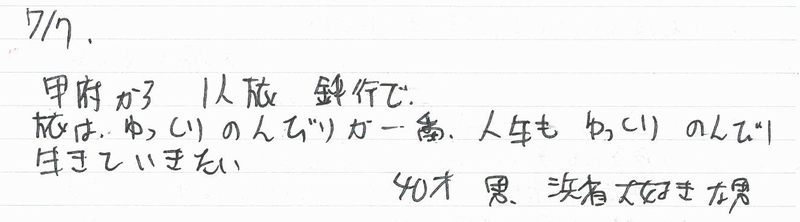 7/7.
甲府から 1人旅 鈍行で.
旅は、ゆっくりのんびりが一番、人生も ゆっくり のんびり
生きていきたい
40才 男、浜省大好きな男